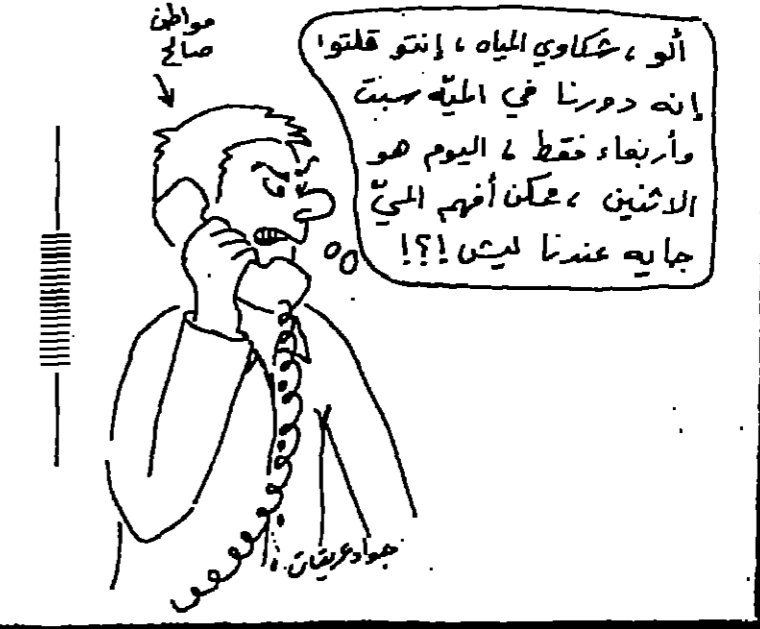 مواطن
صالح
ألو ، شكاوي المياه ، إنتو قلتوا
إنه دورنا في الميّه سبت
وأربعاء فقط ، اليوم هو
الاثنين ، ممكن أفهم الميّ
جايه عندنا ليش !؟!
جواد عريقات